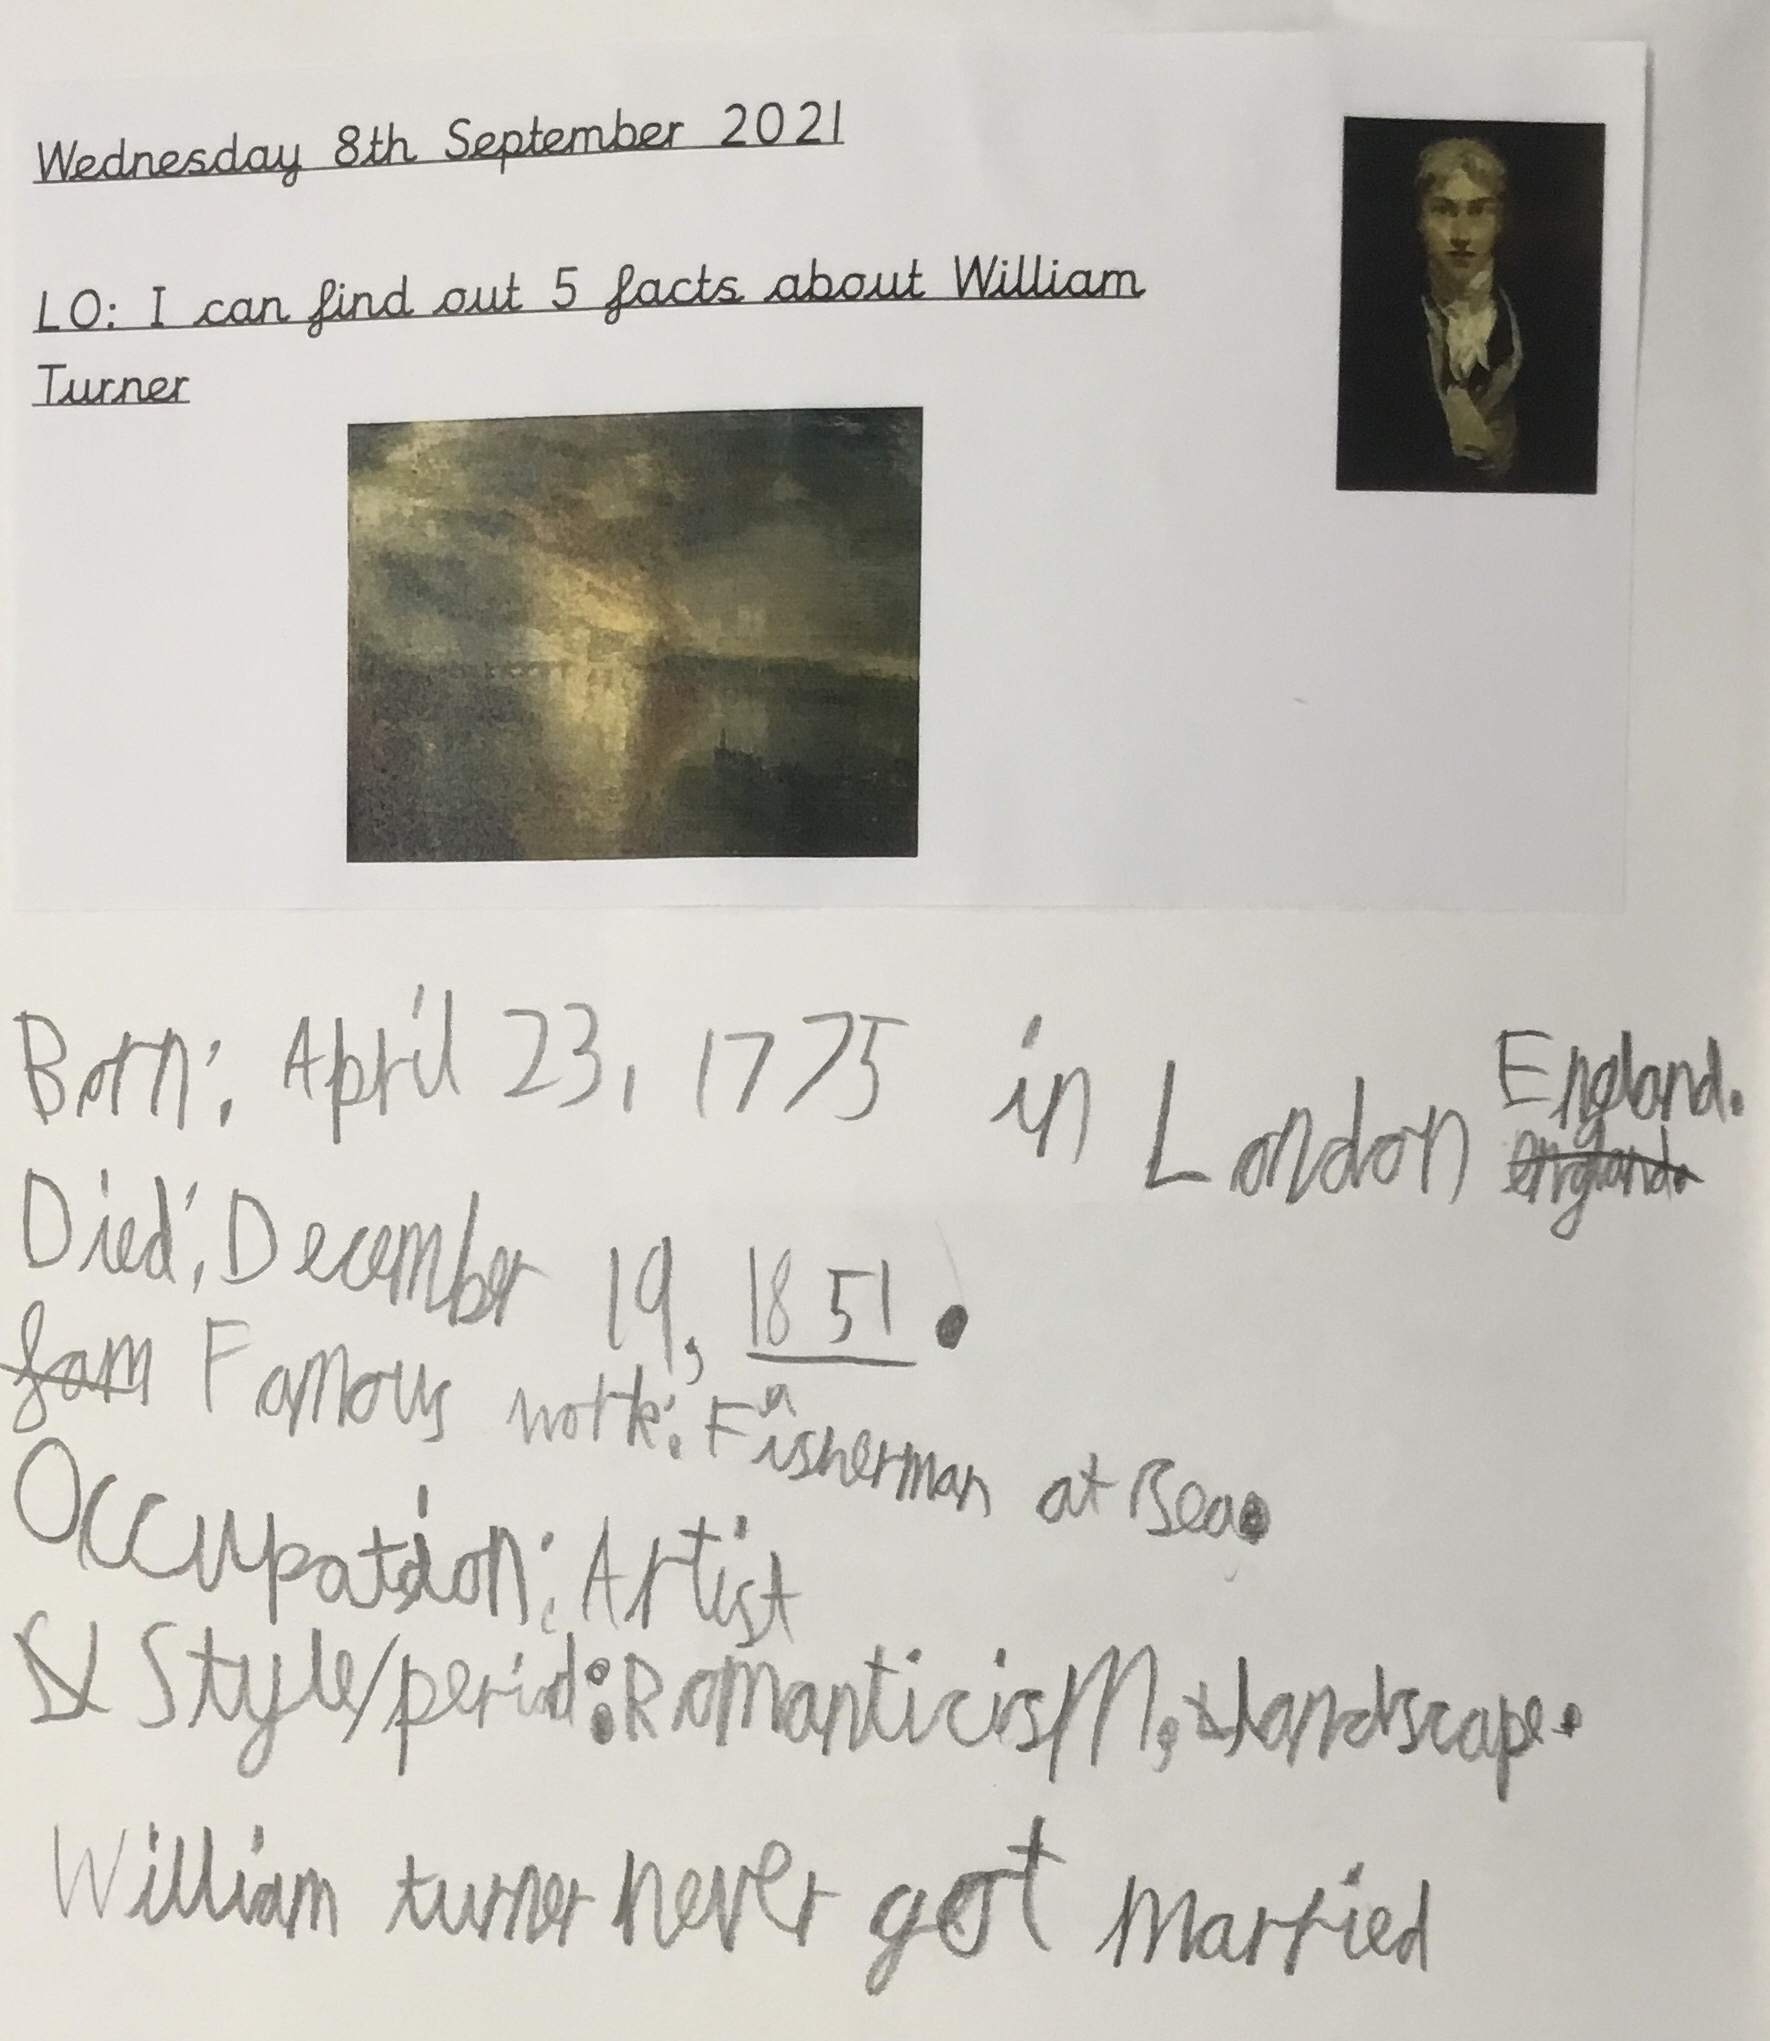 Wednesday 8th September 2021
LO: I can find out 5 facts about William
Turner
Born: April 23, 1775 in London England.
england.
Died: December 19, 1851.
fam Famous work: Fisherman at Sea.
Occupation: Artist
St Style/period: Romanticism, landscape.
William turner never got married